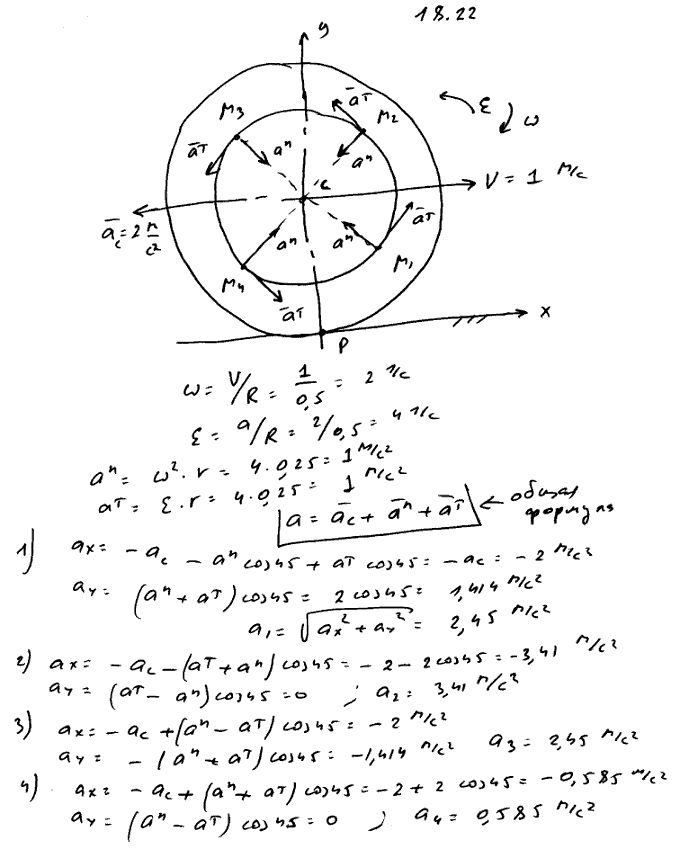 18.22
y
M3
āτ
M2
ε
ω
āτ
aⁿ
aⁿ
c
V = 1 м/с
ā_c = 2 м/с²
aⁿ
aⁿ
āτ
M4
M1
āτ
x
P
ω = V/R = 1/0,5 = 2 1/c
ε = a/R = 2/0,5 = 4 1/c
aⁿ = ω² · r = 4 · 0,25 = 1 м/с²
aτ = ε · r = 4 · 0,25 = 1 м/с²
ā = ā_c + āⁿ + āτ ← общая формула
1) ax = - a_c - aⁿ cos45 + aτ cos45 = - a_c = - 2 м/с²
ay = (aⁿ + aτ) cos45 = 2 cos45 = 1,414 м/с²
a₁ = √(ax² + ay²) = 2,45 м/с²
2) ax = - a_c - (aτ + aⁿ) cos45 = - 2 - 2cos45 = -3,41 м/с²
ay = (aτ - aⁿ) cos45 = 0 ; a₂ = 3,41 м/с²
3) ax = - a_c + (aⁿ - aτ) cos45 = - 2 м/с²
ay = - (aⁿ + aτ) cos45 = -1,414 м/с² a₃ = 2,45 м/с²
4) ax = - a_c + (aⁿ + aτ) cos45 = -2 + 2 cos45 = - 0,585 м/с²
ay = (aⁿ - aτ) cos45 = 0 ; a₄ = 0,585 м/с²